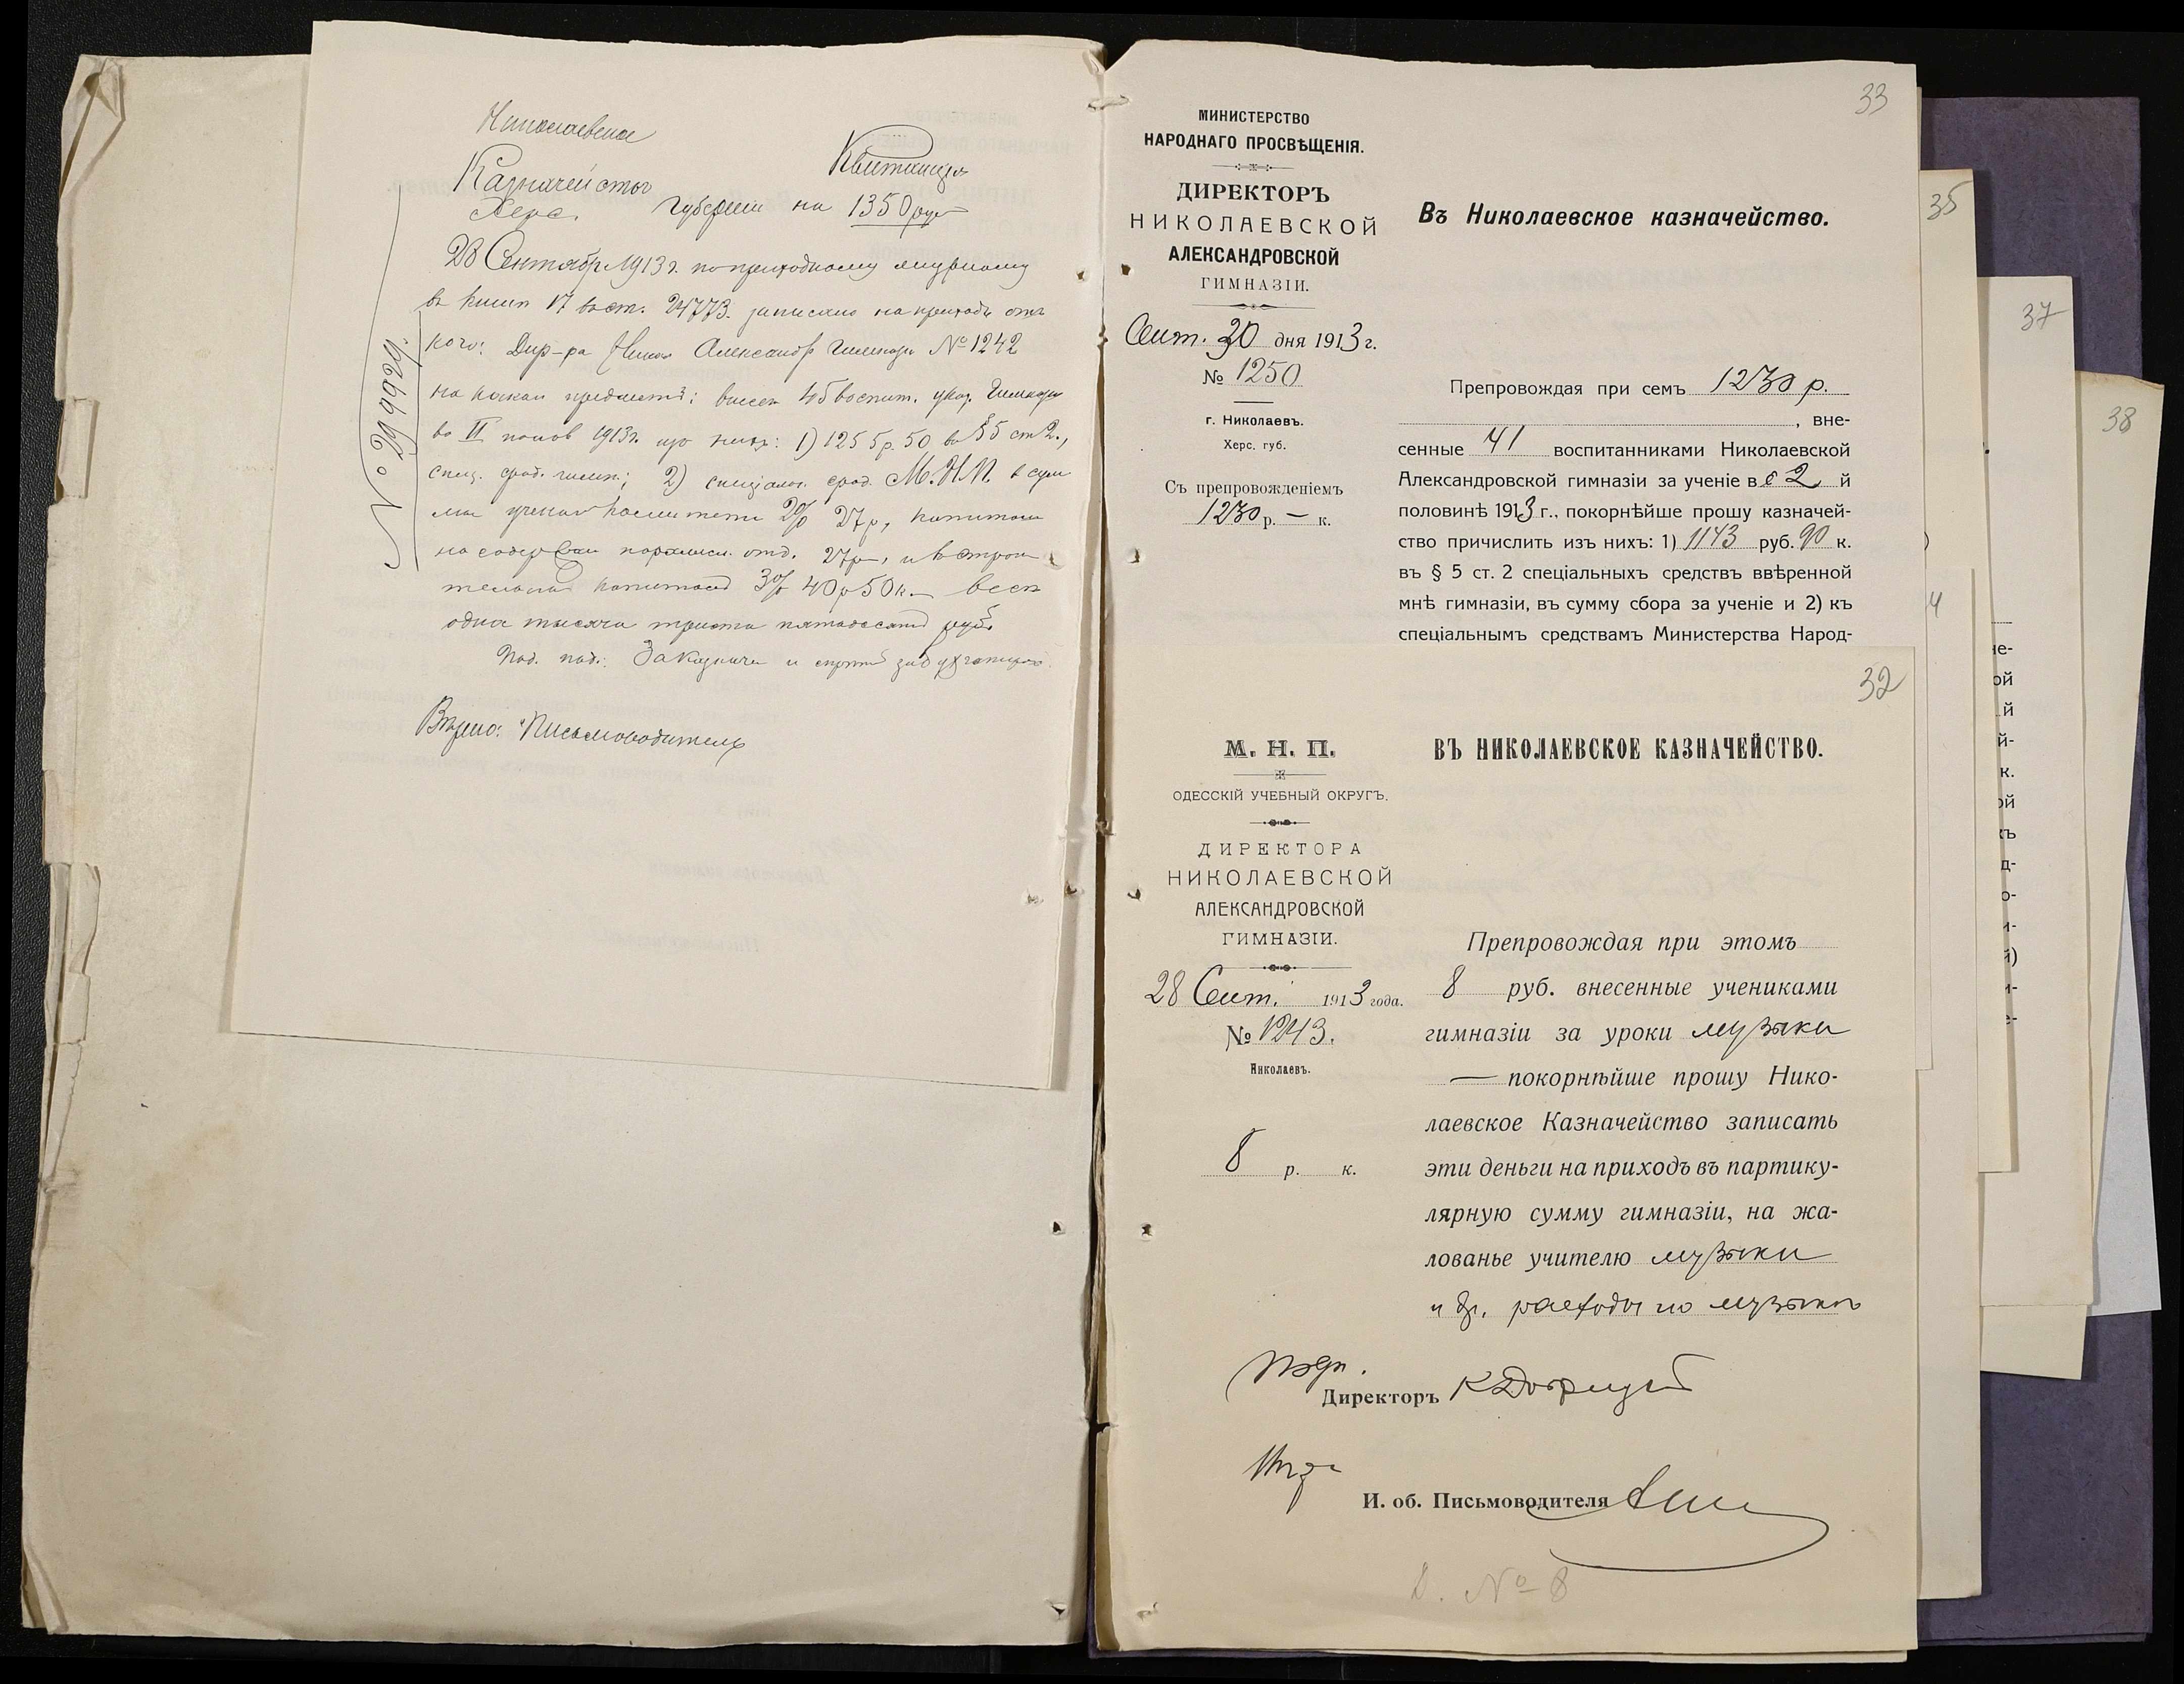 Николаевское
Казначейство
Квитанція
Херс. Губерніи на 1350 руб
№ 299929.
28 Сентябр 1913 г. по приходному журналу
въ книгѣ 17 въ ст. 24773. записано на приходъ отъ
кого: Дир-ра Никол Александр Гимназіи № 1242
на какой предметъ: внесен 45 воспит. указ. Гимназіи
во II полов 1913 г. изъ нихъ: 1) 1255 р. 50 въ § 5 ст 2.,
спец. сред. гимн.; 2) спеціальн. сред. М.Н.П. въ сум
му ученаго комитета 2% 27 р,
на содерж 27 р, и въ строи
тельный капиталъ 3% 40 р 50 к. — всего
одна тысяча триста пятьдесятъ руб.
Под. под.: За Казначея и
Вѣрно: Письмоводитель
33
МИНИСТЕРСТВО
НАРОДНАГО ПРОСВѢЩЕНІЯ.
ДИРЕКТОРЪ
НИКОЛАЕВСКОЙ
АЛЕКСАНДРОВСКОЙ
ГИМНАЗІИ.
Сент. 30 дня 1913 г.
№ 1250
г. Николаевъ.
Херс. губ.
Съ препровожденіемъ
1230 р. — к.
Въ Николаевское казначейство.
Препровождая при семъ 1230 р.
, вне-
сенные 41 воспитанниками Николаевской
Александровской гимназіи за ученіе въ 2 й
половинѣ 1913 г., покорнѣйше прошу казначей-
ство причислить изъ нихъ: 1) 1143 руб. 90 к.
въ § 5 ст. 2 спеціальныхъ средствъ ввѣренной
мнѣ гимназіи, въ сумму сбора за ученіе и 2) къ
спеціальнымъ средствамъ Министерства Народ-
32
М. Н. П.
ОДЕССКІЙ УЧЕБНЫЙ ОКРУГЪ.
ДИРЕКТОРА
НИКОЛАЕВСКОЙ
АЛЕКСАНДРОВСКОЙ
ГИМНАЗІИ.
28 Сент. 1913 года.
№ 1243.
Николаевъ.
8 р. к.
ВЪ НИКОЛАЕВСКОЕ КАЗНАЧЕЙСТВО.
Препровождая при этомъ
8 руб. внесенные учениками
гимназіи за уроки музыки
— покорнѣйше прошу Нико-
лаевское Казначейство записать
эти деньги на приходъ въ партику-
лярную сумму гимназіи, на жа-
лованье учителю музыки
и др. расходы по музыкѣ
Директоръ
И. об. Письмоводителя
№ 8
35
37
38
4
не-
ой
й
й-
к.
ой
хъ
д-
о-
и-
й)
и-
е-